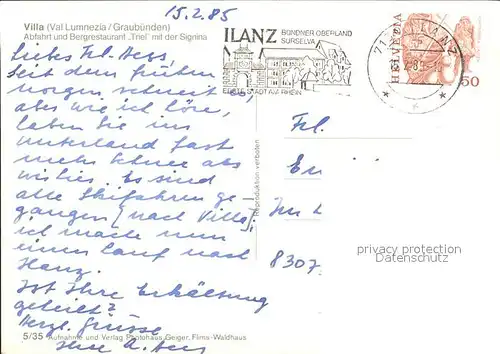 15.2.85
Villa (Val Lumnezia / Graubünden)
Abfahrt und Bergrestaurant „Triel" mit der Signina
Liebes Frl.
Seit dem frühen
morgen schneit es,
aber wie ich höre,
haben Sie im
Unterland fast
mehr Schnee als
wir hier. Es sind
alle Skifahren ge-
gangen (nach Villa),
ich mache nun
einen Lauf nach
Ilanz.
Ist Ihre Erkältung
geheilt?
Herzl. Grüsse
Ihre
5/35 Aufnahme und Verlag Photohaus Geiger, Flims-Waldhaus
Reproduktion verboten
ILANZ
BÜNDNER OBERLAND
SURSELVA
ERSTE STADT AM RHEIN
ILANZ
HELVETIA
50
Frl.
Im
8307
privacy protection
Datenschutz